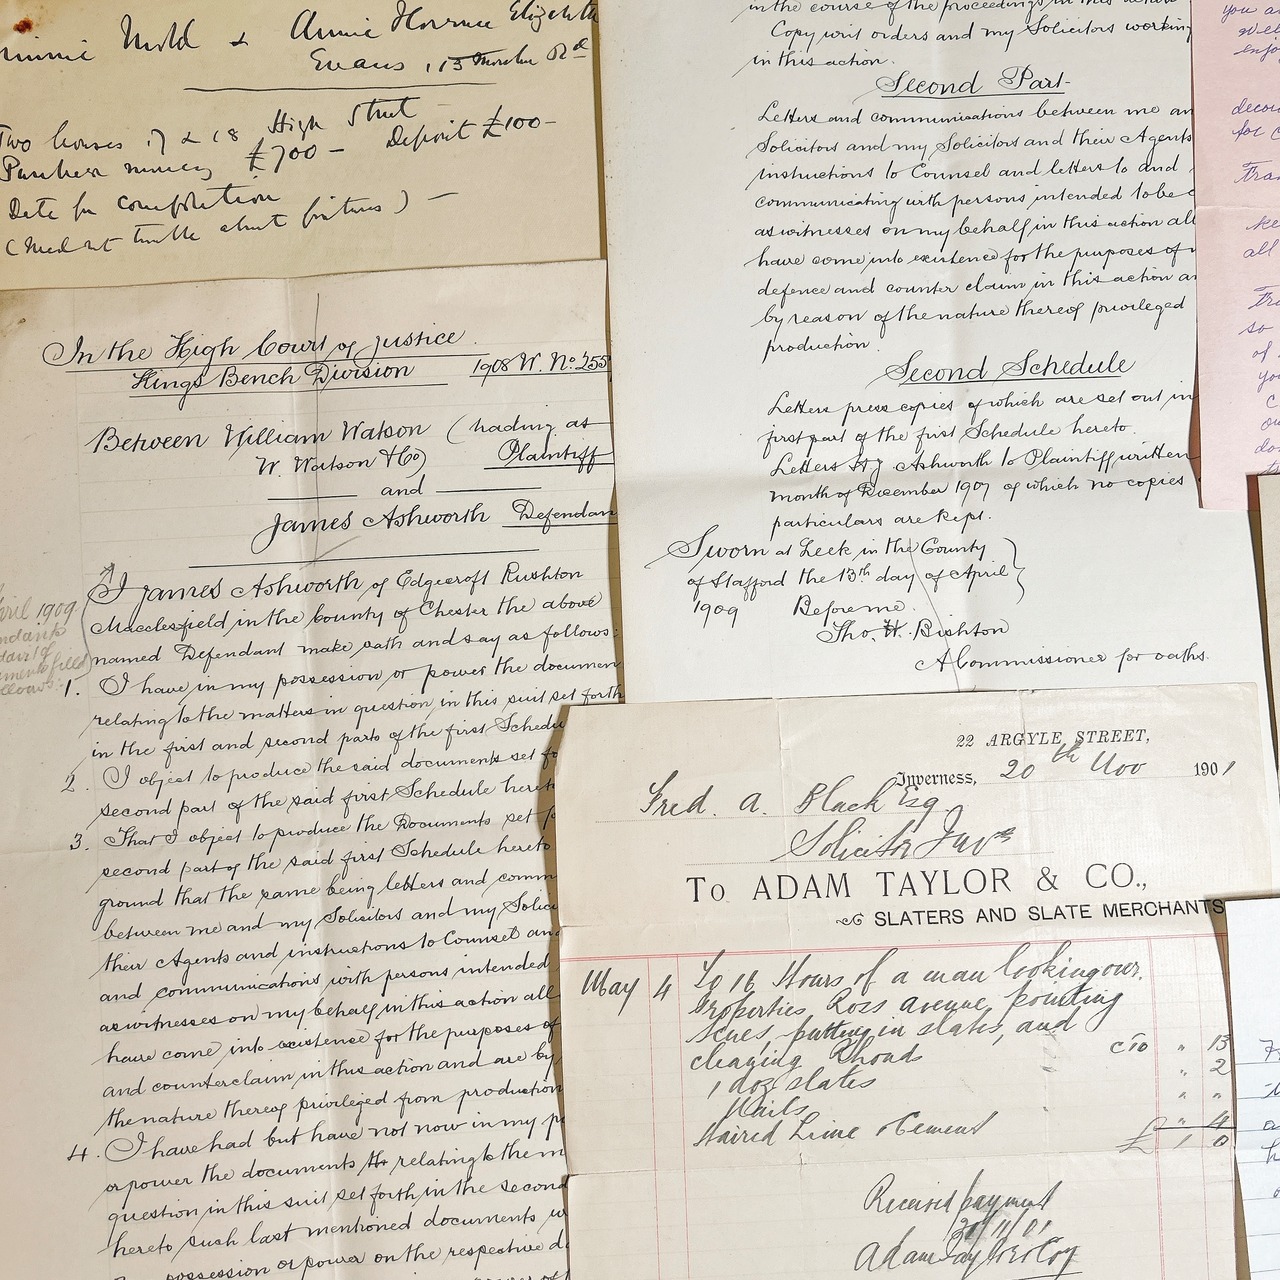 Mold & Annie Florence Elizabeth
Evans, 13
Two houses 17 & 18 High Street
Purchase money £700 - Deposit £100 -
Date for completion
( about fixtures ) -
In the High Court of Justice.
Kings Bench Division 1908 W. No. 255
Between William Watson (trading as
W. Watson & Co) Plaintiff
and
James Ashworth Defendan
I James Ashworth of Edgecroft Rushton
Macclesfield in the County of Chester the above
named Defendant make oath and say as follows:
1. I have in my possession or power the documen
relating to the matters in question in this suit set forth
in the first and second parts of the first Schedu
2. I object to produce the said documents set fo
second part of the said first Schedule hereto
3. That I object to produce the Documents set f
second part of the said first Schedule hereto
ground that the same being letters and comm
between me and my Solicitors and my Solic
their Agents and instructions to Counsel an
and communications with persons intended
as witnesses on my behalf in this action all
have come into existence for the purposes of
and counterclaim in this action and are by
the nature thereof privileged from production
4. I have had but have not now in my p
or power the documents relating to the m
question in this suit set forth in the second
hereto such last mentioned documents w
possession or power on the respective d
April 1909
in the course of the proceedings in this
Copy writ orders and my Solicitors working
in this action.
Second Part
Letters and communications between me an
Solicitors and my Solicitors and their Agents
instructions to Counsel and letters to and
communicating with persons intended to be c
as witnesses on my behalf in this action all
have come into existence for the purposes of
defence and counter claim in this action a
by reason of the nature thereof privileged
production.
Second Schedule
Letters press copies of which are set out in
first part of the first Schedule hereto.
Letters by J. Ashworth to Plaintiff written
month of December 1907 of which no copies
particulars are kept.
Sworn at Leek in the County
of Stafford the 13th day of April
1909 Before me.
Tho. H. Bishton
A Commissioner for oaths.
22 ARGYLE STREET,
Inverness, 20th Nov 1901
Fred. A. Black Esq
Solicitor Invss
To ADAM TAYLOR & CO.,
SLATERS AND SLATE MERCHANTS
May 4 To 16 Hours of a man looking over
Properties Ross avenue, pointing
skews, putting in slates, and
cleaning Rhoads c10 " 13
1 doz slates " 2
Nails " "
Haired Lime & Cement " 4
£ 1 0
Received payment
20/11/01
Adam Taylor & Coy
you a
wel
enjo
decou
for C
Tran
all
Tr
so
of
you